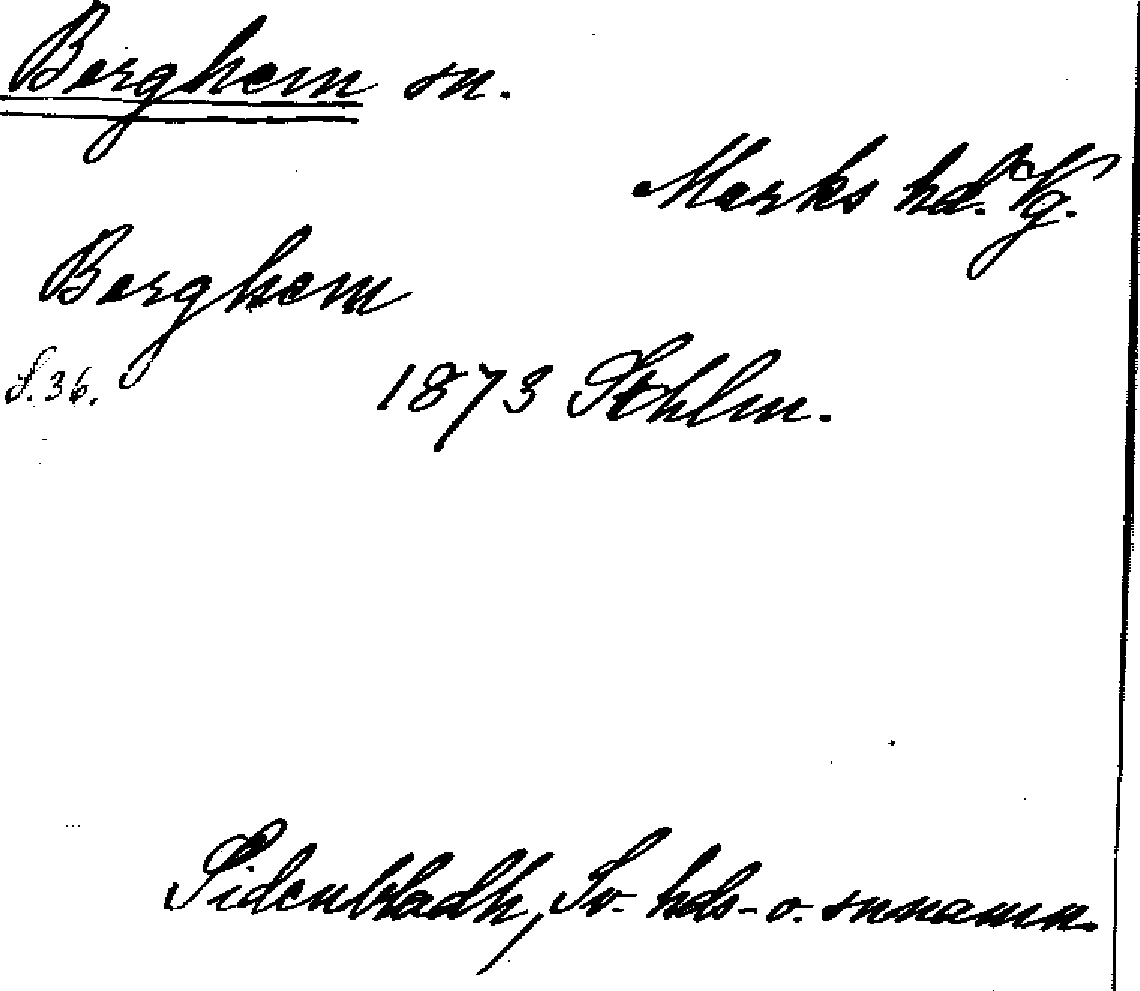 Berghem sn.
Marks hd. Vg.
Berghem
S. 36. 1873 Sthlm.
Sidenbladh, Sv. hds- o. snnamn.